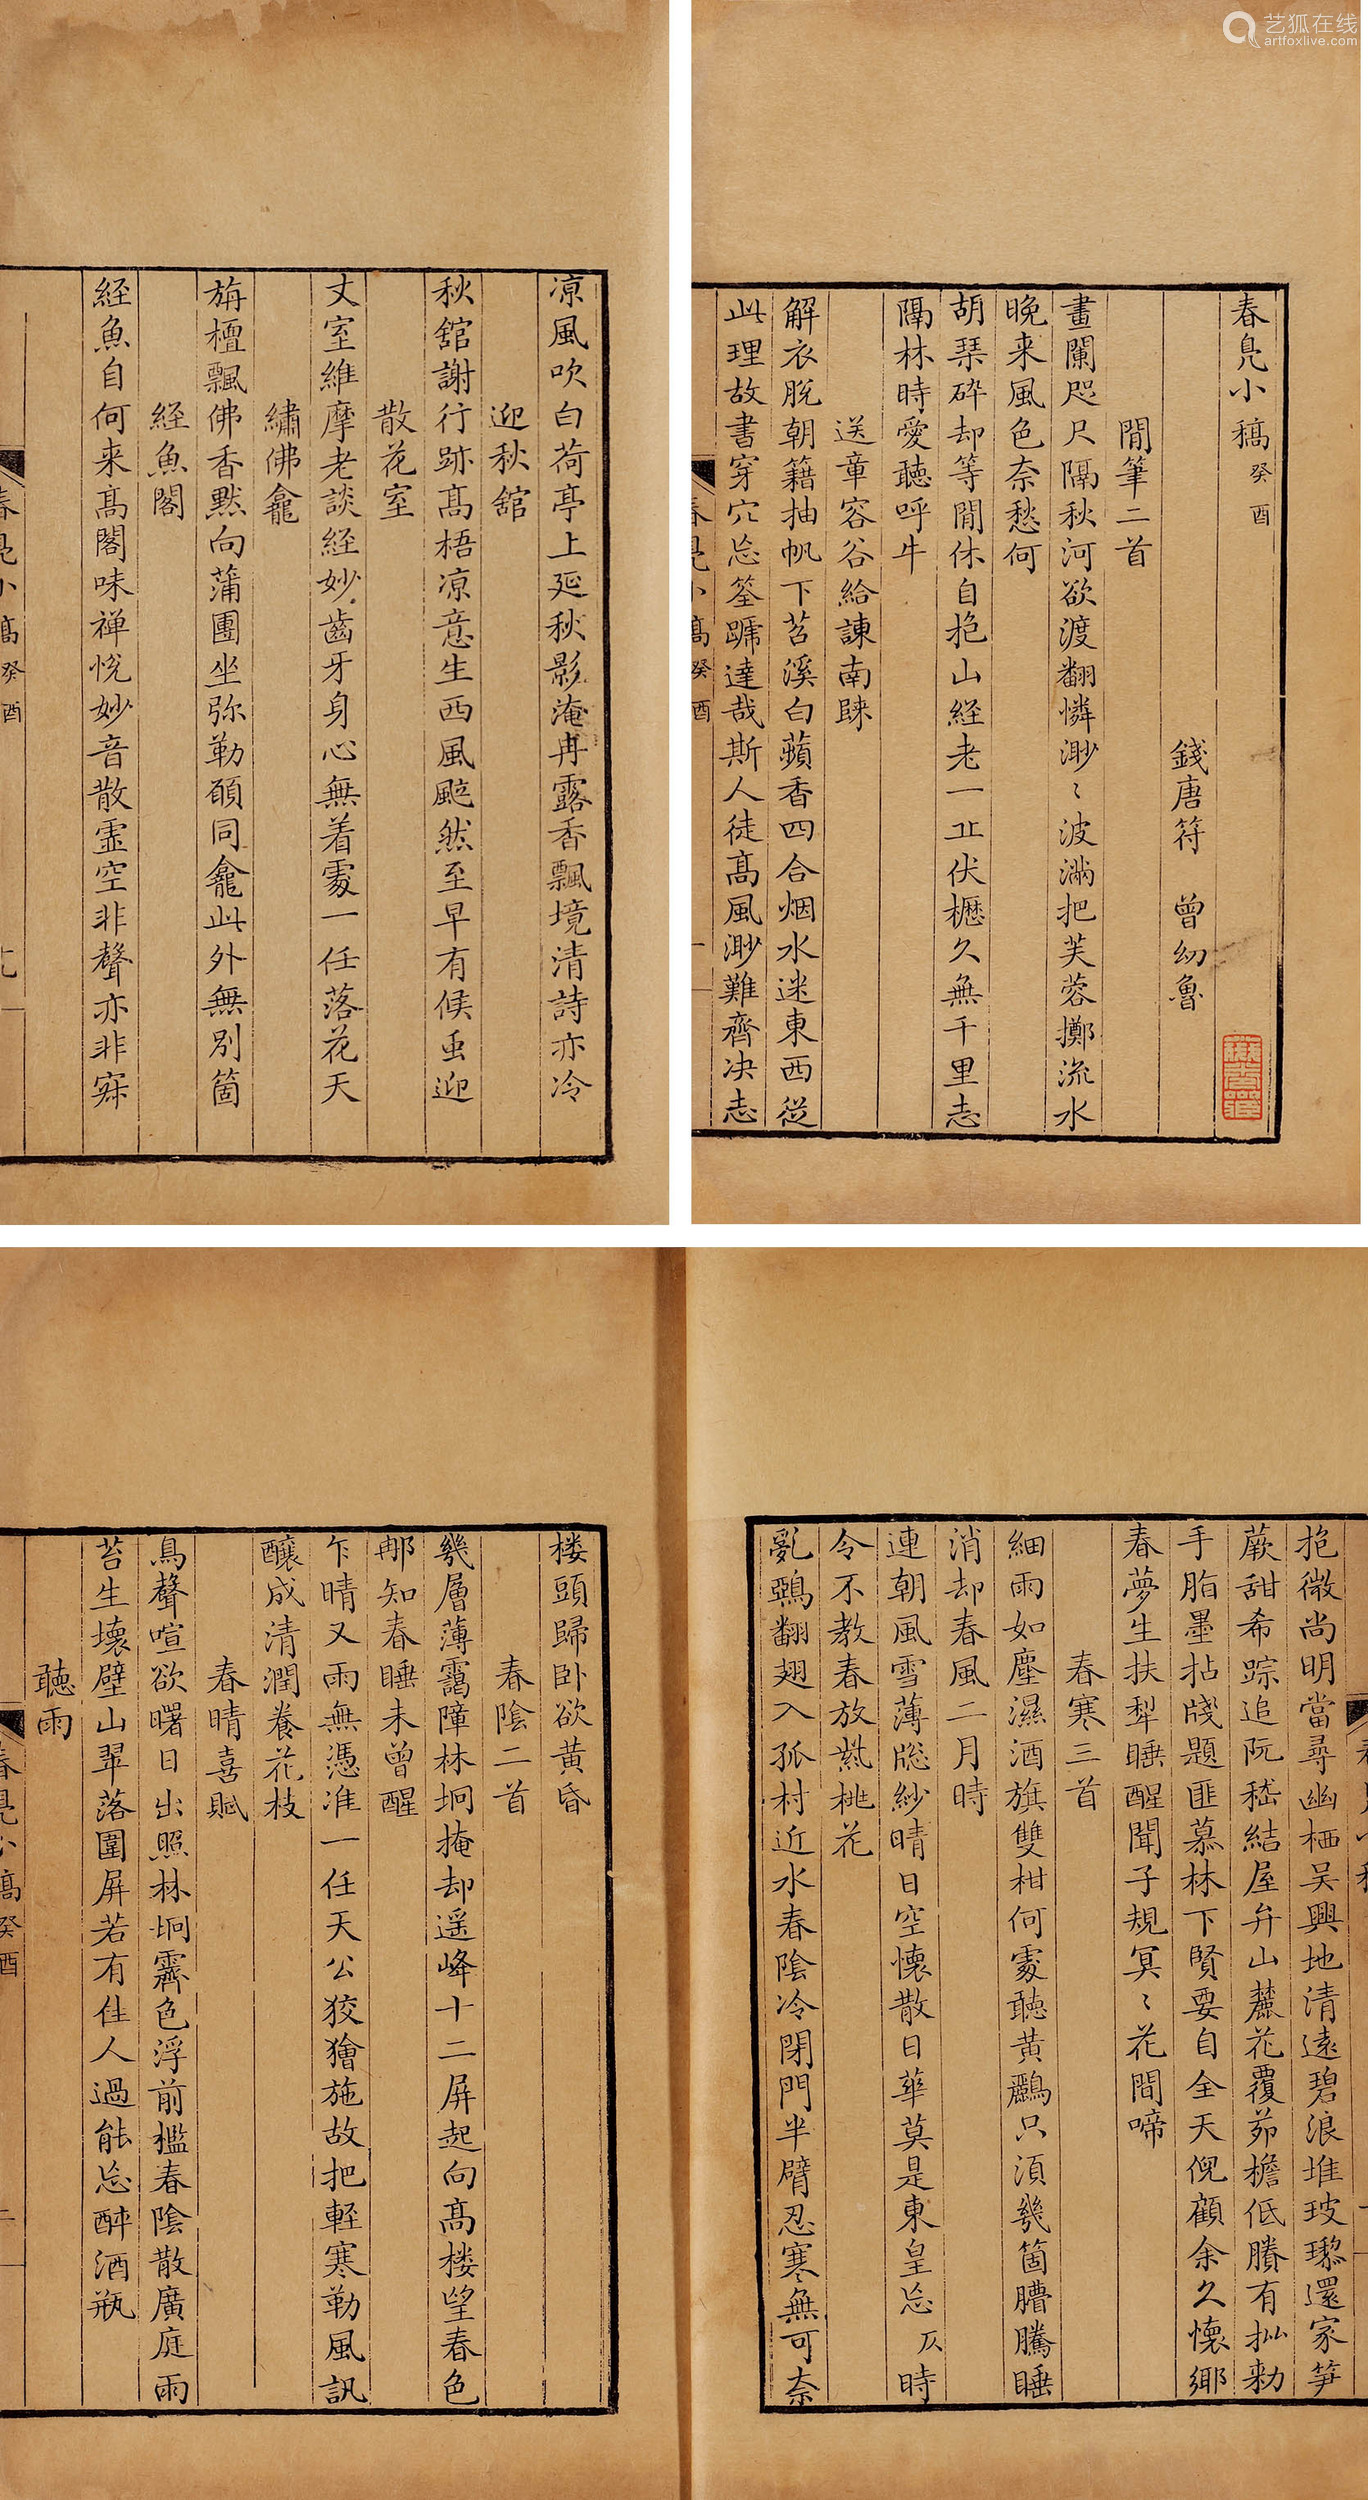 艺狐在线
artfoxlive.com
春鳧小稿癸酉
錢唐符 曾幼魯
閒筆二首
畫闌咫尺隔秋河欲渡翻憐渺〻波滿把芙蓉擲流水
晚来風色奈愁何
胡琹碎却等閒休自抱山経老一丘伏櫪久無千里志
隔林時愛聽呼牛
送章容谷給諫南歸
解衣脫朝籍抽帆下苕溪白蘋香四合烟水迷東西從
此理故書穿穴忘筌蹏達哉斯人徒髙風渺難齊决志
春鳧小稿癸酉
一
凉風吹白荷亭上延秋影淹冉露香飄境清詩亦冷
迎秋舘
秋舘謝行跡髙梧凉意生西風颭然至早有候虫迎
散花室
丈室維摩老談経妙齒牙身心無着處一任落花天
繡佛龕
旃檀飄佛香黙向蒲團坐弥勒願同龕此外無別箇
経魚閣
経魚自何来髙閣味禅悅妙音散虛空非聲亦非寂
春鳧小稿癸酉
抱微尚明當尋幽栖吴興地清遠碧浪堆玻瓈還家笋
蕨甜希踪追阮嵇結屋弁山麓花覆茆檐低賸有拟勑
手脂墨拈牋題匪慕林下賢要自全天倪顧余久懷鄉
春夢生扶犂睡醒聞子規冥〻花間啼
春寒三首
細雨如塵濕酒旗雙柑何處聽黄鸝只須幾箇膿騰睡
消却春風二月時
連朝風雪薄牕紗晴日空懷散日華莫是東皇忘仄時
令不教春放紫桃花
亂鵶翻翅入孤村近水春陰冷閉門半臂忍寒無可奈
楼頭歸卧欲黄昏
春陰二首
幾層薄靄障林坰掩却遥峰十二屏起向髙楼望春色
那知春睡未曾醒
乍晴又雨無憑准一任天公狡獪施故把輕寒勒風訊
釀成清潤養花枝
春晴喜賦
鳥聲喧欲曙日出照林坰霽色浮前檻春陰散廣庭雨
苔生壊壁山翠落圍屏若有佳人過能忘醉酒瓶
聽雨
春鳧小稿癸酉
二